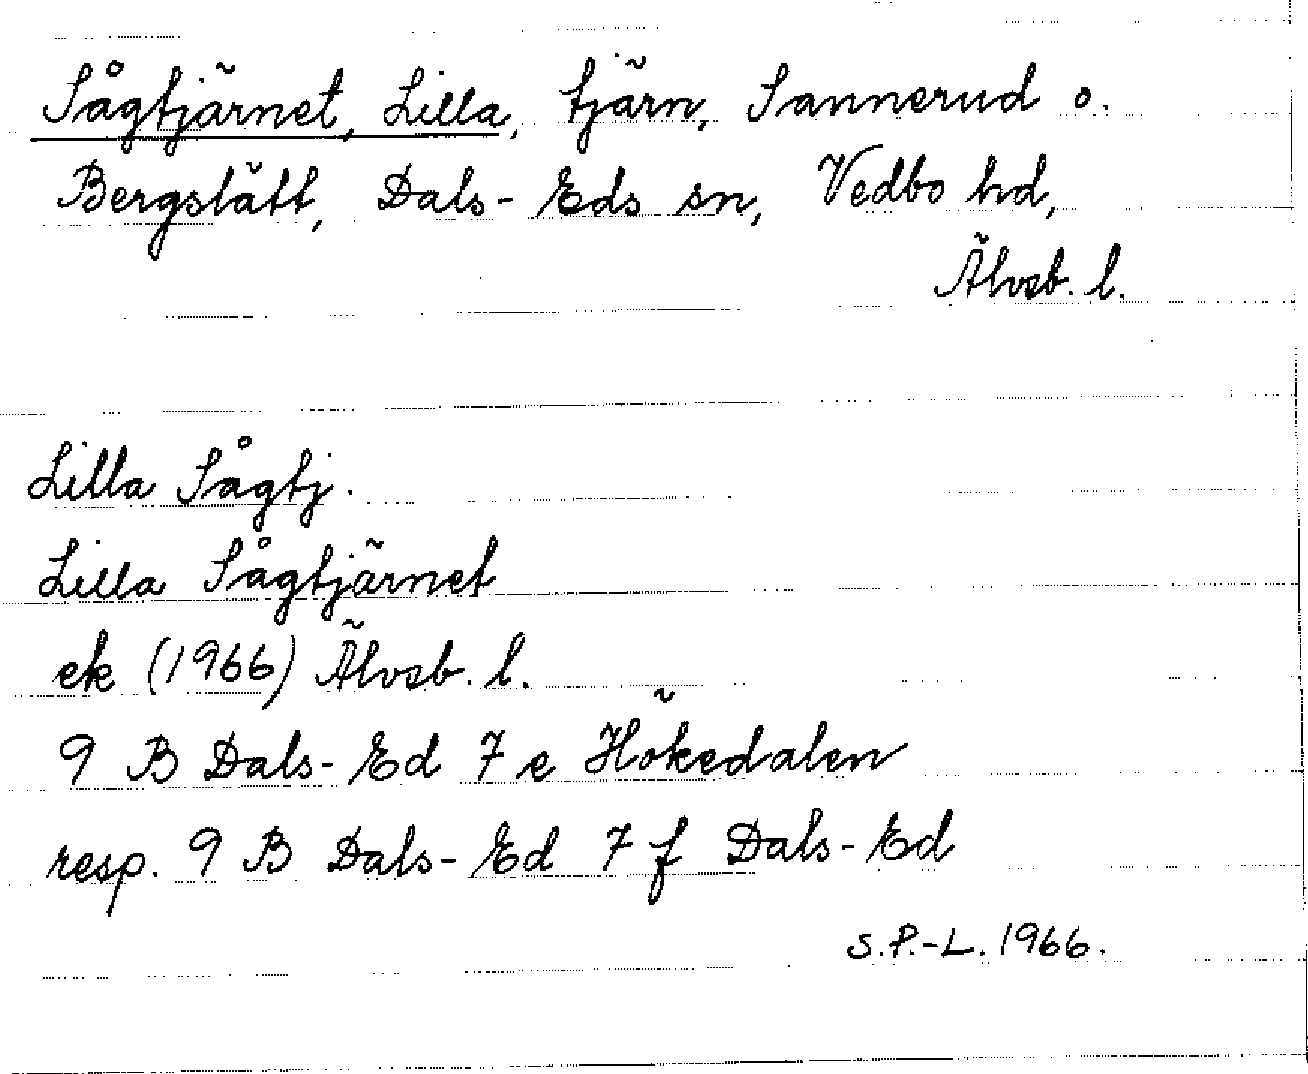 Sågtjärnet, Lilla, tjärn, Sannerud o.
Bergslätt, Dals-Eds sn, Vedbo hd,
Älvsb. l.
Lilla Sågtj.
Lilla Sågtjärnet
ek (1966) Älvsb. l.
9 B Dals-Ed 7 e Hökedalen
resp. 9 B Dals-Ed 7 f Dals-Ed
S.P.-L. 1966.